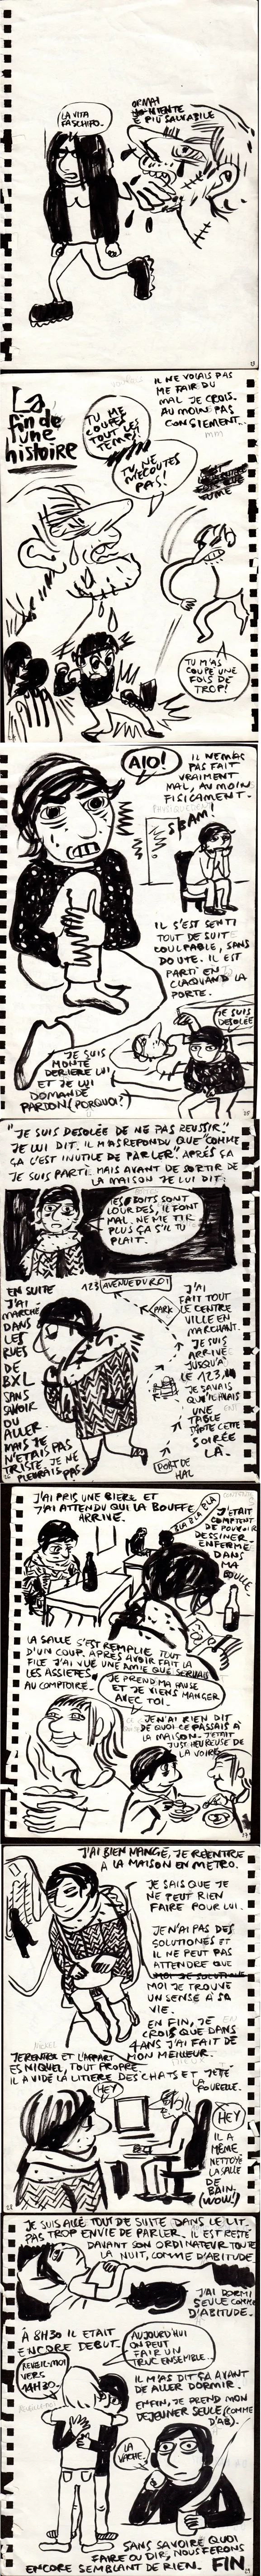 LA VITA
FA SCHIFO.
ORMAI
NIENTE
È PIÙ SALVABILE
La
fin de
une
histoire
IL NE VOLAIS PAS
ME FAIR DU
MAL JE CROIS.
AU MOIN PAS
CONSIEMENT...
TU ME
COUPES
TOUT LES
TEMPS!
TU NE
M'ECOUTES
PAS!
TU M'AS
COUPÉ UNE
FOIS DE
TROP!
AIO!
IL NE M'A
PAS FAIT
VRAIMENT
MAL, AU MOIN
FISICAMENT.
SBAM!
IL S'EST SENTI
TOUT DE SUIT
COULPABLE, SANS
DOUTE. IL EST
PARTI EN
CLAQUAND LA
PORTE.
JE SUIS
DESOLÉE
JE SUIS
MONTÉ
DERIERE LUI
ET JE LUI
DOMANDE
PARDON (PORQUOI?)
25
"JE SUIS DESOLÉE DE NE PAS REUSSIR."
JE LUI DIT. IL M'AS REPONDU QUE "COMME
ÇA C'EST INUTILE DE PARLER". APRÉS ÇA
JE SUIS PARTI. MAIS AVANT DE SORTIR DE
LA MAISON JE LUI DIT:
TES DOITS SONT
LOURDES, IL FONT
MAL. NE ME TIR
PLUS ÇA S'IL TU
PLAIT.
EN SUITE
J'AI
MARCHÉ
DANS
LES
RUES
DE
BXL
SANS
SAVOIR
OU
ALLER.
MAIS JE
N'ETAIS PAS
TRISTE. JE NE
PLEURAIS PAS.
123 AVENUE DU ROI
PARK
PORT DE
HAL
J'AI
FAIT TOUT
LE CENTRE
VILLE EN
MARCHANT.
JE SUIS
ARRIVÉ
JUSQU'A
LE 123,
JE SAVAIS
QU'IL AVAIS
UNE
TABLE
D'HOTE CETTE
SOIRÉE
LÀ.
26
J'AI PRIS UNE BIERE ET
J'AI ATTENDU QUI LA BOUFFE
ARRIVE.
BLA BLA BLA
J'ETAIT
COMPTENT
DE POUVOIR
DESSINER
ENFERMÉ
DANS
MA
BOULLE.
LA SALLE S'EST REMPLIE TOUT
D'UN COUP. APRES AVOIR FAIT LA
FILE J'AI VUE UNE AMIE QUE SERVAIS
LES ASSIETES
AU COMPTOIRE.
JE PREND MA PAUSE
ET JE VIENS MANGER
AVEC TOI.
JE N'AI RIEN DIT
DE QUOI CE PASSAIS À
LA MAISON. J'ETAIT
JUST HEUREUSE DE
LA VOIRE.
27
J'AI BIEN MANGÉ, JE REENTRE
A LA MAISON EN METRO.
JE SAIS QUE JE
NE PEUT RIEN
FAIRE POUR LUI.
JE N'AI PAS DES
SOLUTIONES ET
IL NE PEUT PAS
ATTENDRE QUE
MOI JE TROUVE
UN SENSE A SA
VIE.
EN FIN, JE
CROIS QUE DANS
4 ANS J'AI FAIT DE
MON MEILLEUR.
JE RENTRE ET L'APPART
ES NIQUEL, TOUT PROPRE.
IL A VIDÉ LA LITIERE DES CHATS ET JETÉ
LA
POUBELLE.
HEY
HEY
IL A
MÊME
NETTOYÉ
LA SALLE
DE
BAIN.
(WOW!)
28
JE SUIS ALLÉ TOUT DE SUITE DANS LE LIT.
PAS TROP ENVIE DE PARLER. IL EST RESTÉ
DAVANT SON ORDINATEUR TOUTE
LA NUIT, COMME D'ABITUDE.
J'AI DORMI
SEULE COMME
D'ABITUDE.
À 8H30 IL ETAIT
ENCORE DEBUT.
AUJOURD'HUI
ON PEUT
FAIR UN
TRUC ENSEMBLE...
REVEIL-MOI
VERS
14H30.
IL M'AS DIT ÇA AVANT
DE ALLER DORMIR.
ENFIN, JE PREND MON
DEJEUNER SEULE (COMME
D'AB).
LA
VACHE.
SANS SAVOIRE QUOI
FAIRE OU DIR, NOUS FERONS
ENCORE SEMBLANT DE RIEN. FIN
29